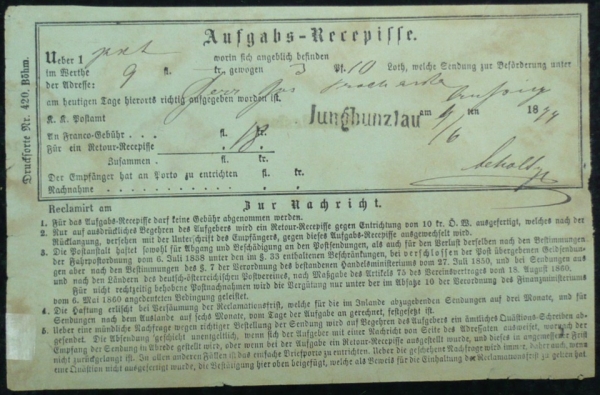 Aufgabs-Recepisse.
Ueber 1 pkt worin sich angeblich befinden
im Werthe 9 fl. kr. gewogen 3 Pf. 10 Loth, welche Sendung zur Beförderung unter
der Adresse: Herr Jos
am heutigen Tage hierorts richtig aufgegeben worden ist.
K. K. Postamt Jungbunzlau am 9/6 ten 18
An Franco-Gebühr . . . fl. kr.
Für ein Retour-Recepisse . 18 .
Zusammen . fl. kr.
Der Empfänger hat an Porto zu entrichten fl. kr.
Nachnahme . . . . . . . . . .
Drucksorte Nr. 420, Böhm.
Reclamirt am
Zur Nachricht.
1. Für das Aufgabs-Recepisse darf keine Gebühr abgenommen werden.
2. Nur auf ausdrückliches Begehren des Aufgebers wird ein Retour-Recepisse gegen Entrichtung von 10 kr. Ö. W. ausgefertigt, welches nach der
Rücklangung, versehen mit der Unterschrift des Empfängers, gegen dieses Aufgabs-Recepisse ausgewechselt wird.
3. Die Postanstalt haftet sowohl für Abgang und Beschädigung an den Postsendungen, als auch für den Verlust derselben nach den Bestimmungen
der Fahrpostordnung vom 6. Juli 1838 unter den im §. 33 enthaltenen Beschränkungen, bei verschlossen der Post übergebenen Geldsendun-
gen aber nach den Bestimmungen des §. 7 der Verordnung des bestandenen Handelsministeriums vom 27. Juli 1850, und bei Sendungen aus
und nach den Ländern des deutsch-österreichischen Postvereines, nach Maßgabe des Artikels 75 des Vereinsvertrages vom 18. August 1860.
Für nicht rechtzeitig behobene Postnachnahmen wird die Vergütung nur unter der im Absatz 10 der Verordnung des Finanzministeriums
vom 6. Mai 1860 angedeuteten Bedingung geleistet.
4. Die Haftung erlischt bei Versäumung der Reclamationsfrist, welche für die im Inlande abzugebenden Sendungen auf drei Monate, und für
Sendungen nach dem Auslande auf sechs Monate, vom Tage der Aufgabe an gerechnet, festgesetzt ist.
5. Ueber eine mündliche Nachfrage wegen richtiger Bestellung der Sendung wird auf Begehren des Aufgebers ein ämtliches Quästions-Schreiben ab-
gesendet. Die Absendung geschieht unentgeltlich, wenn sich der Aufgeber mit einer Nachricht von Seite des Adressaten ausweiset, wornach der
Empfang der Sendung in Abrede gestellt wird, oder wenn bei der Aufgabe ein Retour-Recepisse ausgestellt wurde, und dieses in angemessener Frist
nicht zurückgelangt ist. In allen anderen Fällen ist das einfache Briefporto zu entrichten. Ueber die geschehene Nachfrage wird immer, daher auch, wenn
eine Quästion nicht ausgefertigt wurde, die Bestätigung hier oben beigefügt, welche als Beweis für die Einhaltung der Reclamationsfrist zu gelten hat.